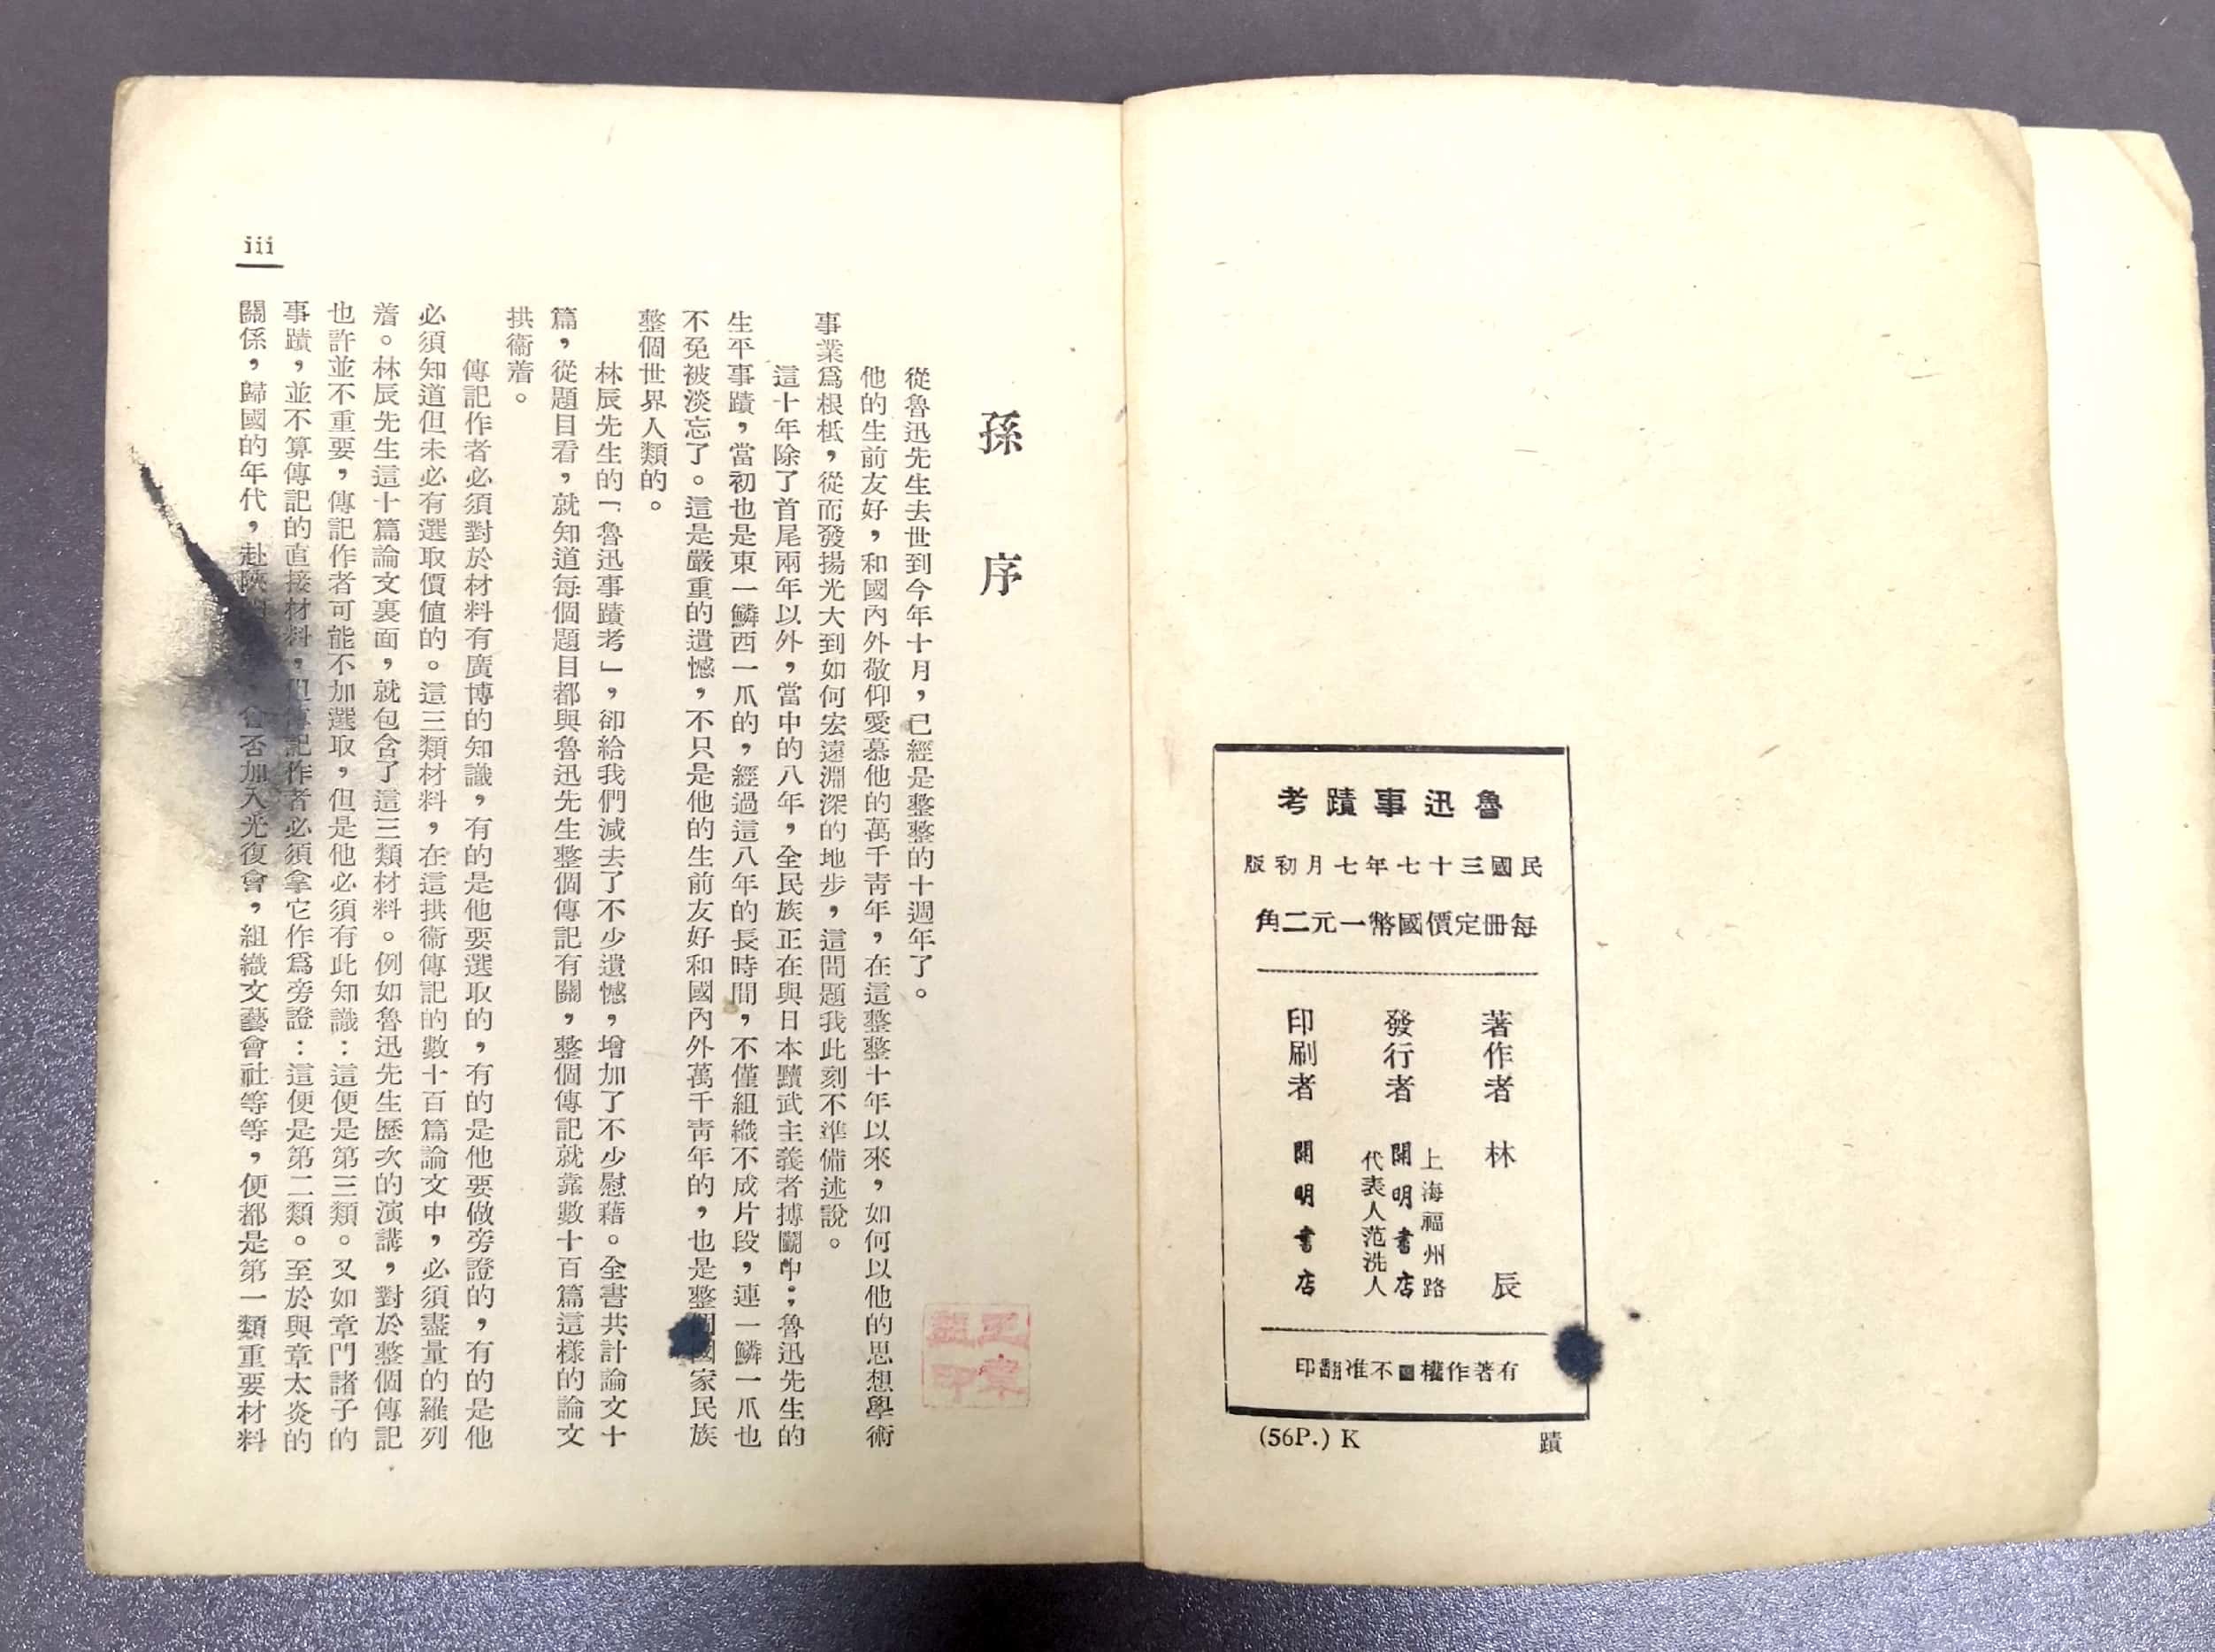 魯迅事蹟考
民國三十七年七月初版
每冊定價國幣一元二角
著作者 林辰
發行者
上海福州路
開明書店
代表人范洗人
印刷者 開明書店
有著作權不准翻印
(56P.) K
蹟
孫序
從魯迅先生去世到今年十月，已經是整整的十週年了。
他的生前友好，和國內外敬仰愛慕他的萬千靑年，在這整整十年以來，如何以他的思想學術
事業爲根柢，從而發揚光大到如何宏遠淵深的地步，這問題我此刻不準備述說。
這十年除了首尾兩年以外，當中的八年，全民族正在與日本黷武主義者搏鬭中；魯迅先生的
生平事蹟，當初也是東一鱗西一爪的，經過這八年的長時間，不僅組織不成片段，連一鱗一爪也
不免被淡忘了。這是嚴重的遺憾，不只是他的生前友好和國內外萬千靑年的，也是整個國家民族
整個世界人類的。
林辰先生的「魯迅事蹟考」，卻給我們減去了不少遺憾，增加了不少慰藉。全書共計論文十
篇，從題目看，就知道每個題目都與魯迅先生整個傳記有關，整個傳記就靠數十百篇這樣的論文
拱衞着。
傳記作者必須對於材料有廣博的知識，有的是他要選取的，有的是他要做旁證的，有的是他
必須知道但未必有選取價值的。這三類材料，在這拱衞傳記的數十百篇論文中，必須盡量的羅列
着。林辰先生這十篇論文裏面，就包含了這三類材料。例如魯迅先生歷次的演講，對於整個傳記
也許並不重要，傳記作者可能不加選取，但是他必須有此知識：這便是第三類。又如章門諸子的
事蹟，並不算傳記的直接材料，但傳記作者必須拿它作爲旁證：這便是第二類。至於與章太炎的
關係，歸國的年代，赴陝，會否加入光復會，組織文藝會社等等，便都是第一類重要材料
iii